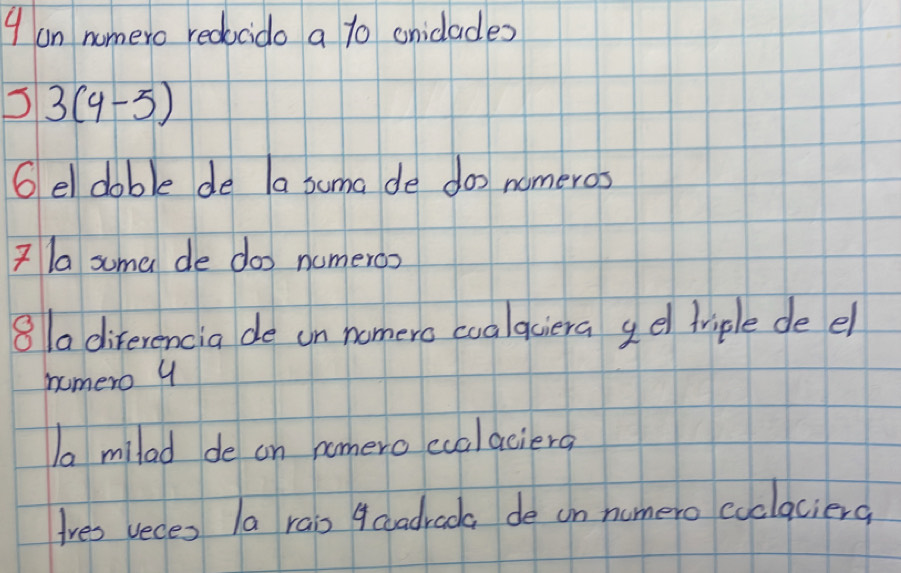 4 un numero reducido a 10 unidades
5 3(4-5)
6 el doble de la suma de dos numeros
7 la suma de dos numeros
8 la diferencia de un numero cualquiera y el triple de el
numero 4
la mitad de un numero cualaciera
tres veces la rais quadrada de un numero cualaciera